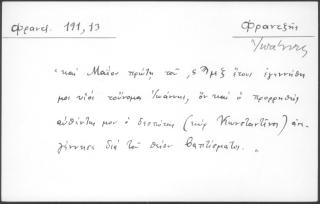 Φραντζ. 191, 13
Φραντζῆς
Ἰωάννης
"καὶ Μαΐου πρώτῃ τοῦ ϛϠμξ ἔτους ἐγεννήθη
μοι υἱὸς τοὔνομα Ἰωάννης, ὃν καὶ ὁ προρρηθεὶς
αὐθέντης μου ὁ δεσπότης (κὺρ Κωνσταντῖνος) ἀνε-
γέννησε διὰ τοῦ θείου βαπτίσματος."